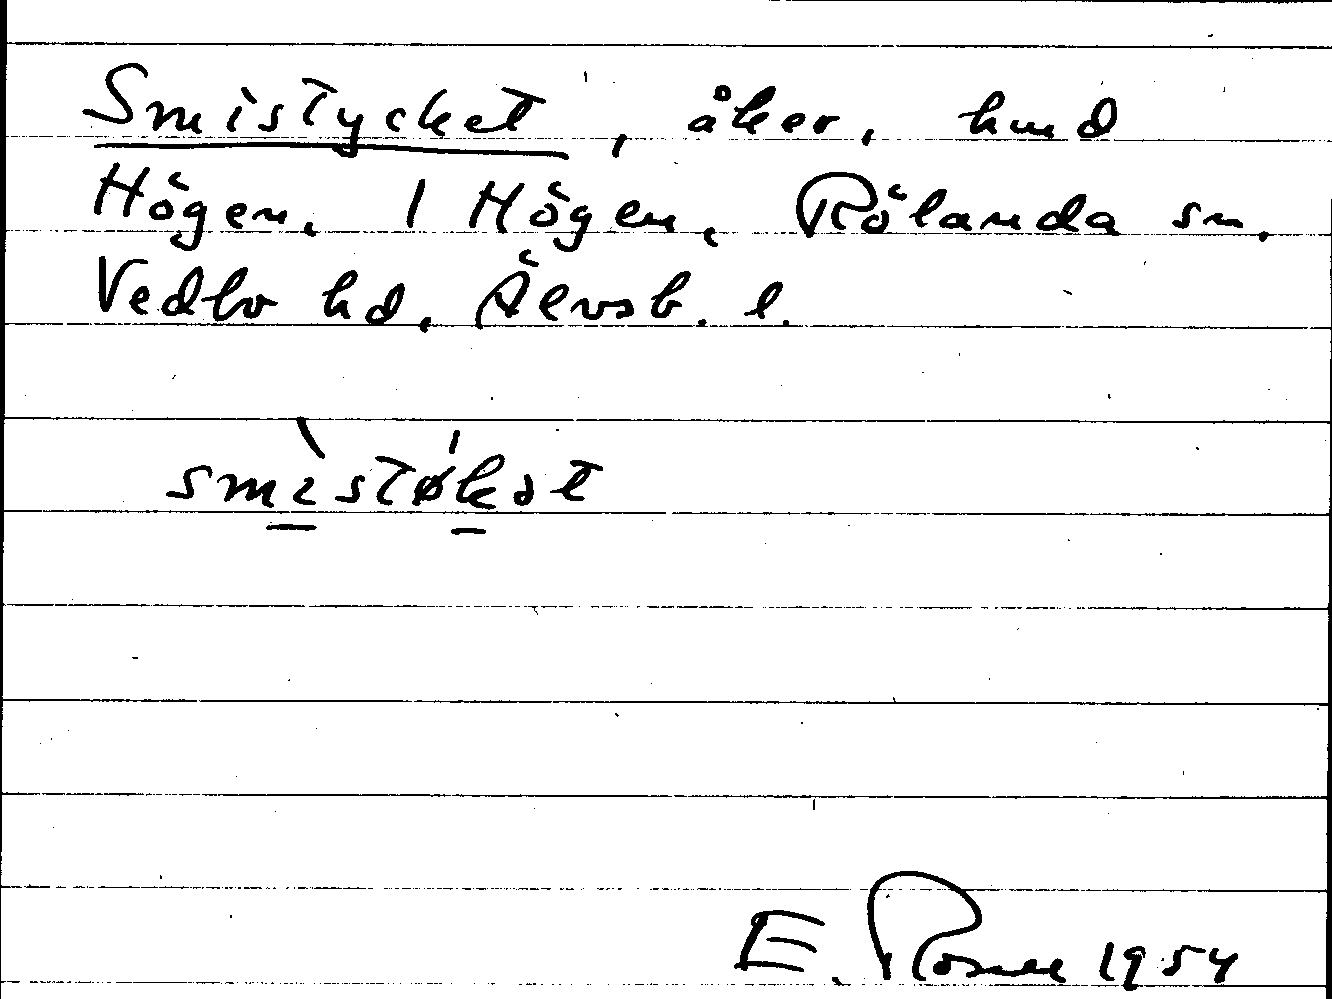 Smistycket, åker, hmd
Högen. 1 Högen, Rölanda sn.
Vedbo hd. Älvsb. l.
smistøkət
E. Rosell 1954